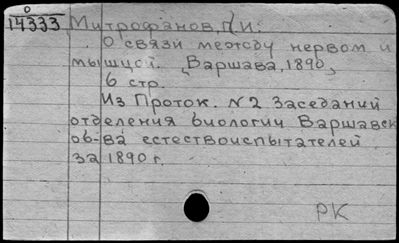 О
14333 Митрофанов, П. И.
О связи между нервом и
мышцей. [Варшава, 1890,]
6 стр.
Из Проток. N2 Заседаний
отделения биологии Варшавск
об-ва естествоиспытателей
за 1890 г.
РК